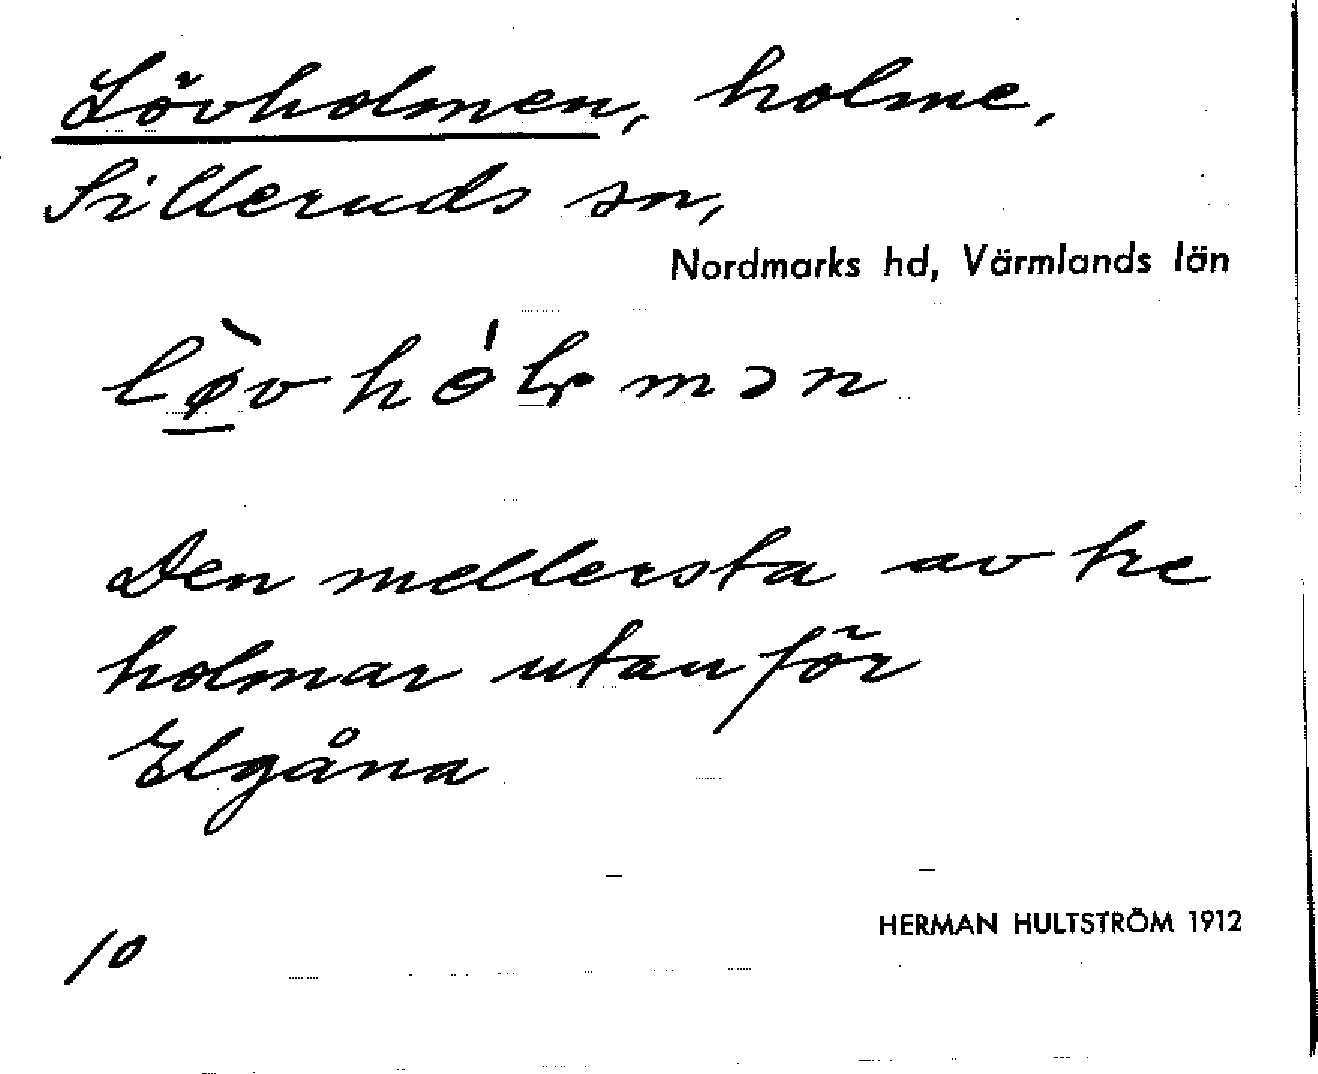 Lövholmen, holme,
Silleruds sn,
Nordmarks hd, Värmlands län
Den mellersta av tre
holmar utanför
Elgåna
HERMAN HULTSTRÖM 1912
10